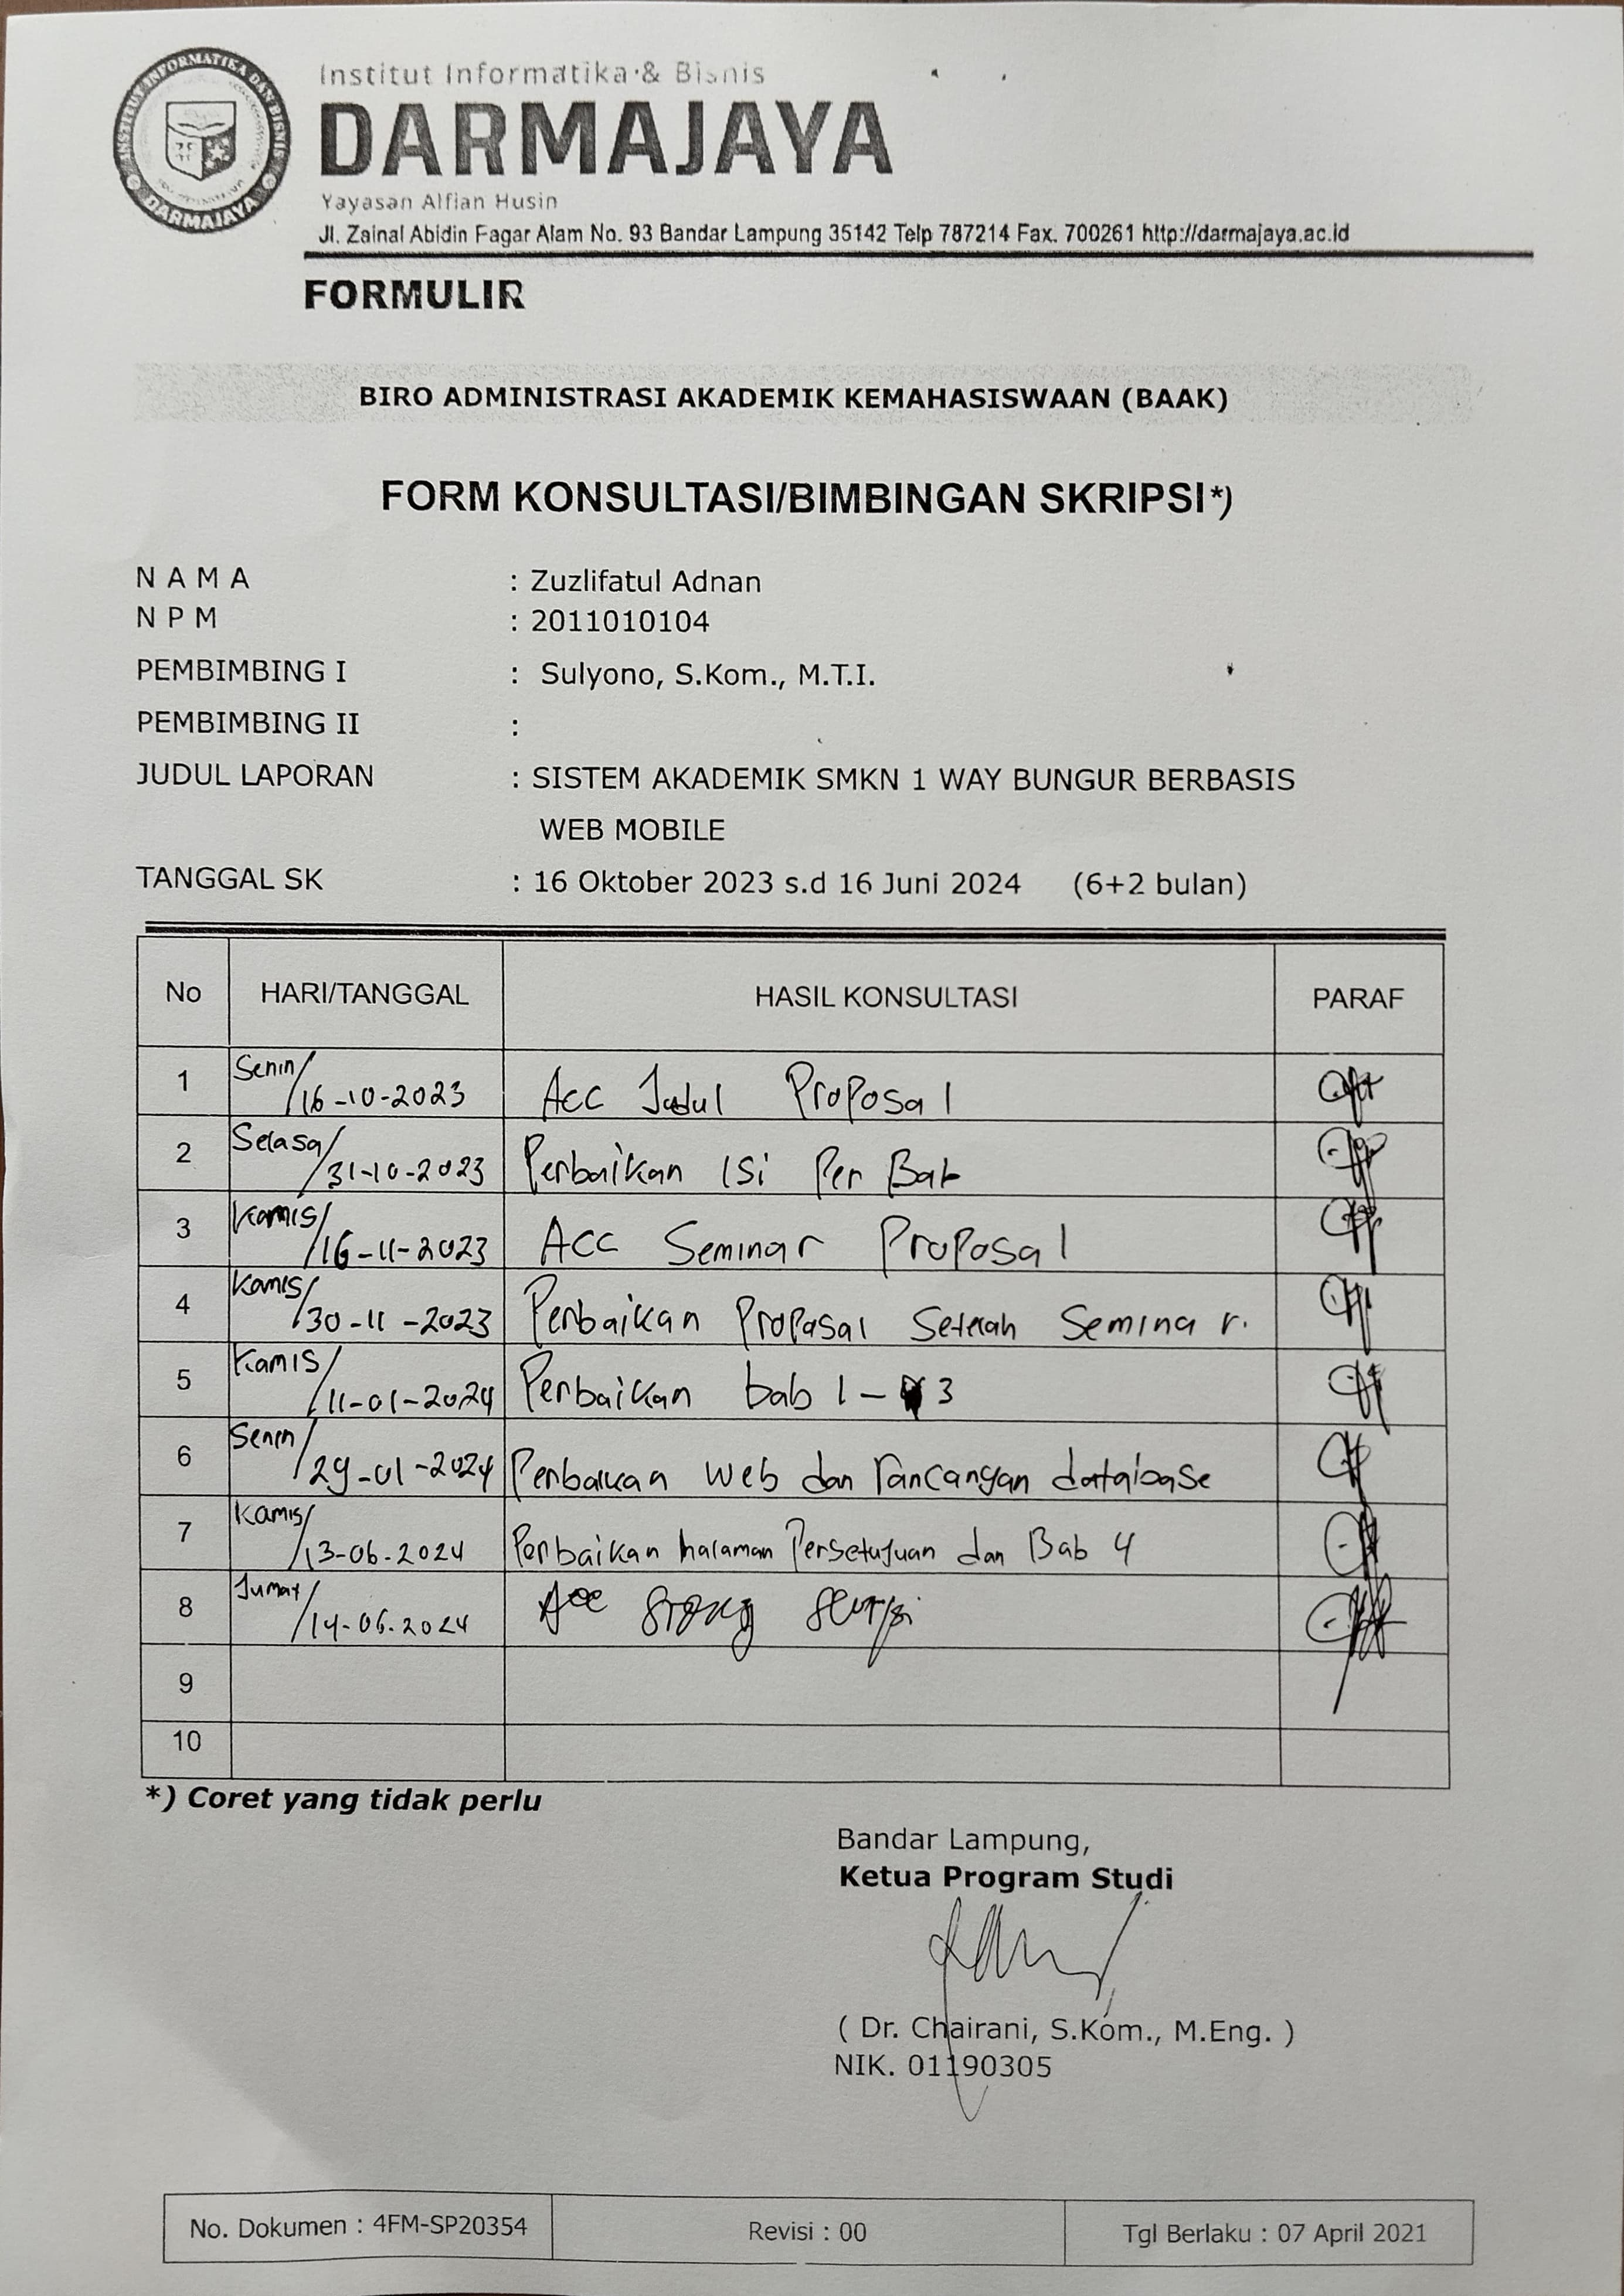 INSTITUT INFORMATIKA DAN BISNIS
DARMAJAYA
Institut Informatika & Bisnis
DARMAJAYA
Yayasan Alfian Husin
Jl. Zainal Abidin Fagar Alam No. 93 Bandar Lampung 35142 Telp 787214 Fax. 700261 http://darmajaya.ac.id
FORMULIR
BIRO ADMINISTRASI AKADEMIK KEMAHASISWAAN (BAAK)
FORM KONSULTASI/BIMBINGAN SKRIPSI*)
N A M A : Zuzlifatul Adnan
N P M : 2011010104
PEMBIMBING I : Sulyono, S.Kom., M.T.I.
PEMBIMBING II :
JUDUL LAPORAN : SISTEM AKADEMIK SMKN 1 WAY BUNGUR BERBASIS
WEB MOBILE
TANGGAL SK : 16 Oktober 2023 s.d 16 Juni 2024 (6+2 bulan)
No HARI/TANGGAL HASIL KONSULTASI PARAF
1 Senin/16-10-2023 Acc Judul Proposal
2 Selasa/31-10-2023 Perbaikan Isi Per Bab
3 Kamis/16-11-2023 Acc Seminar Proposal
4 Kamis/30-11-2023 Perbaikan Proposal Setelah Seminar.
5 Kamis/11-01-2024 Perbaikan bab 1 - 3
6 Senin/29-01-2024 Perbaikan Web dan rancangan database
7 Kamis/13-06-2024 Perbaikan halaman Persetujuan dan Bab 4
8 Jumat/14-06-2024 Acc Sidang Skripsi
9
10
*) Coret yang tidak perlu
Bandar Lampung,
Ketua Program Studi
( Dr. Chairani, S.Kom., M.Eng. )
NIK. 01190305
No. Dokumen : 4FM-SP20354 Revisi : 00 Tgl Berlaku : 07 April 2021